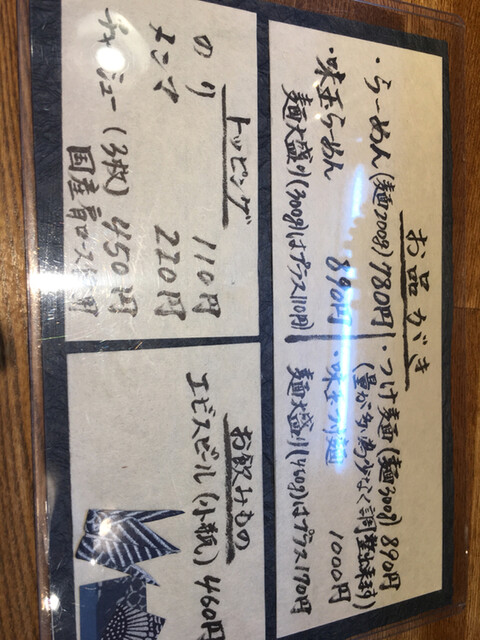 お品がき
・らーめん(麺200g) 780円
・味玉らーめん 890円
麺大盛り(300g)はプラス110円
・つけ麺(麺300g) 890円
(量が多い為少なく調整出来ます)
・味玉つけ麺 1000円
麺大盛り(460g)はプラス170円
トッピング
のり 110円
メンマ 220円
チャーシュー(3枚) 450円
国産肩ロース使用
お飲みもの
エビスビール(小瓶) 460円